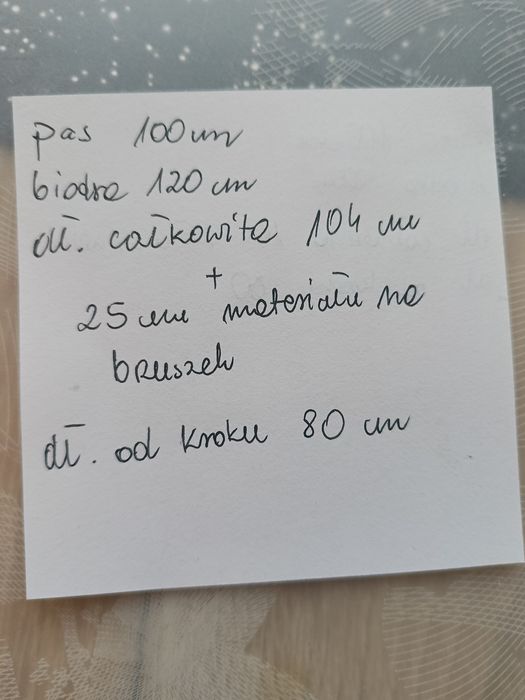 pas 100 cm
biodra 120 cm
dł. całkowita 104 cm
+
25 cm materiału na
bruszek
dł. od kroku 80 cm